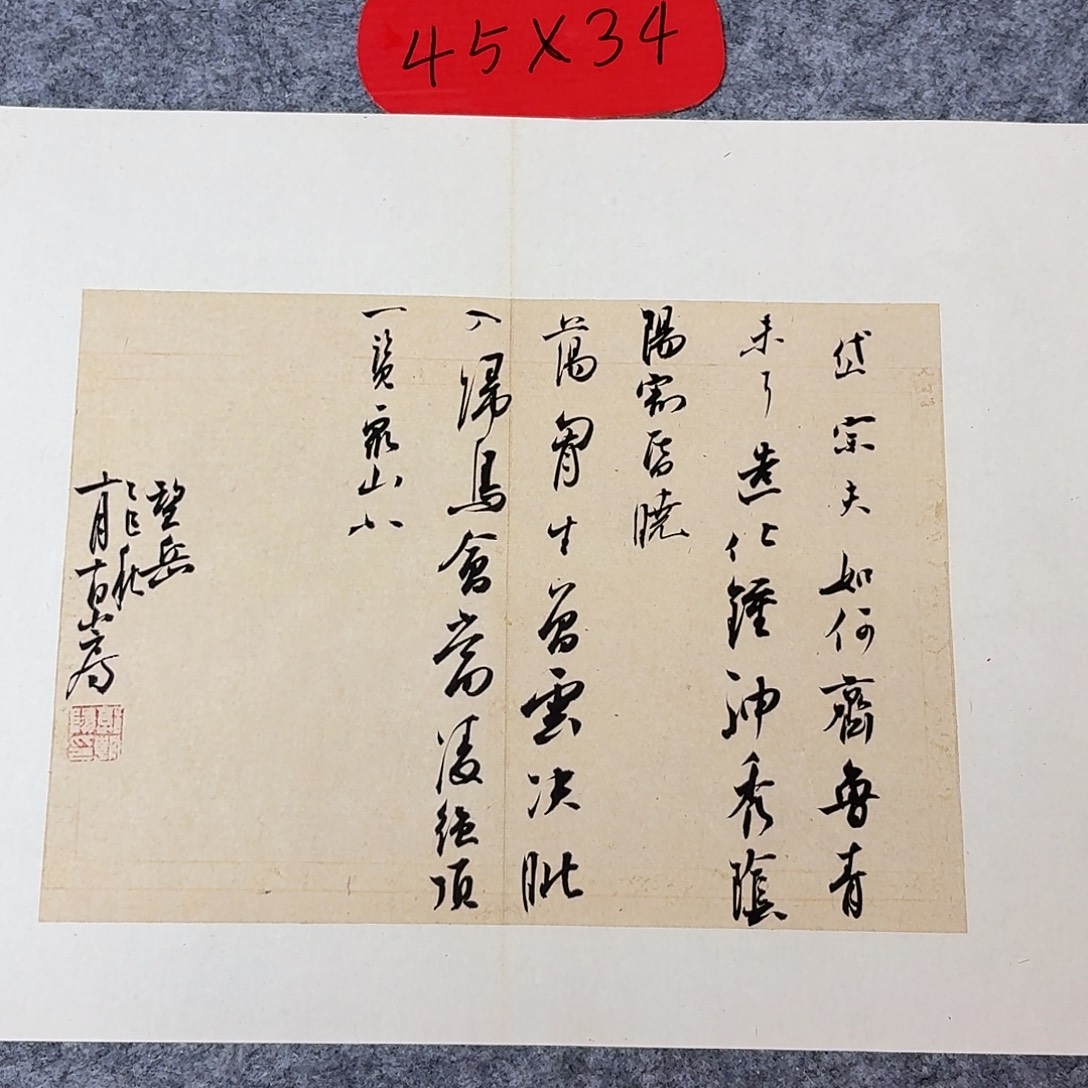 45X34
岱宗夫如何齊魯青
未了造化鍾神秀陰
陽割昏曉
蕩胷生曾雲决眦
入歸鳥會當凌絕頂
一覽衆山小
望岳
乙巳秋